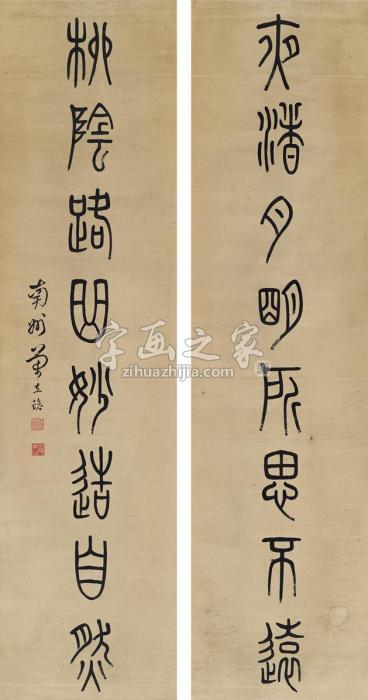 夜渚月明所思不遠
柳陰路曲妙造自然
南州萬立
字画之家
zihuazhijia.com